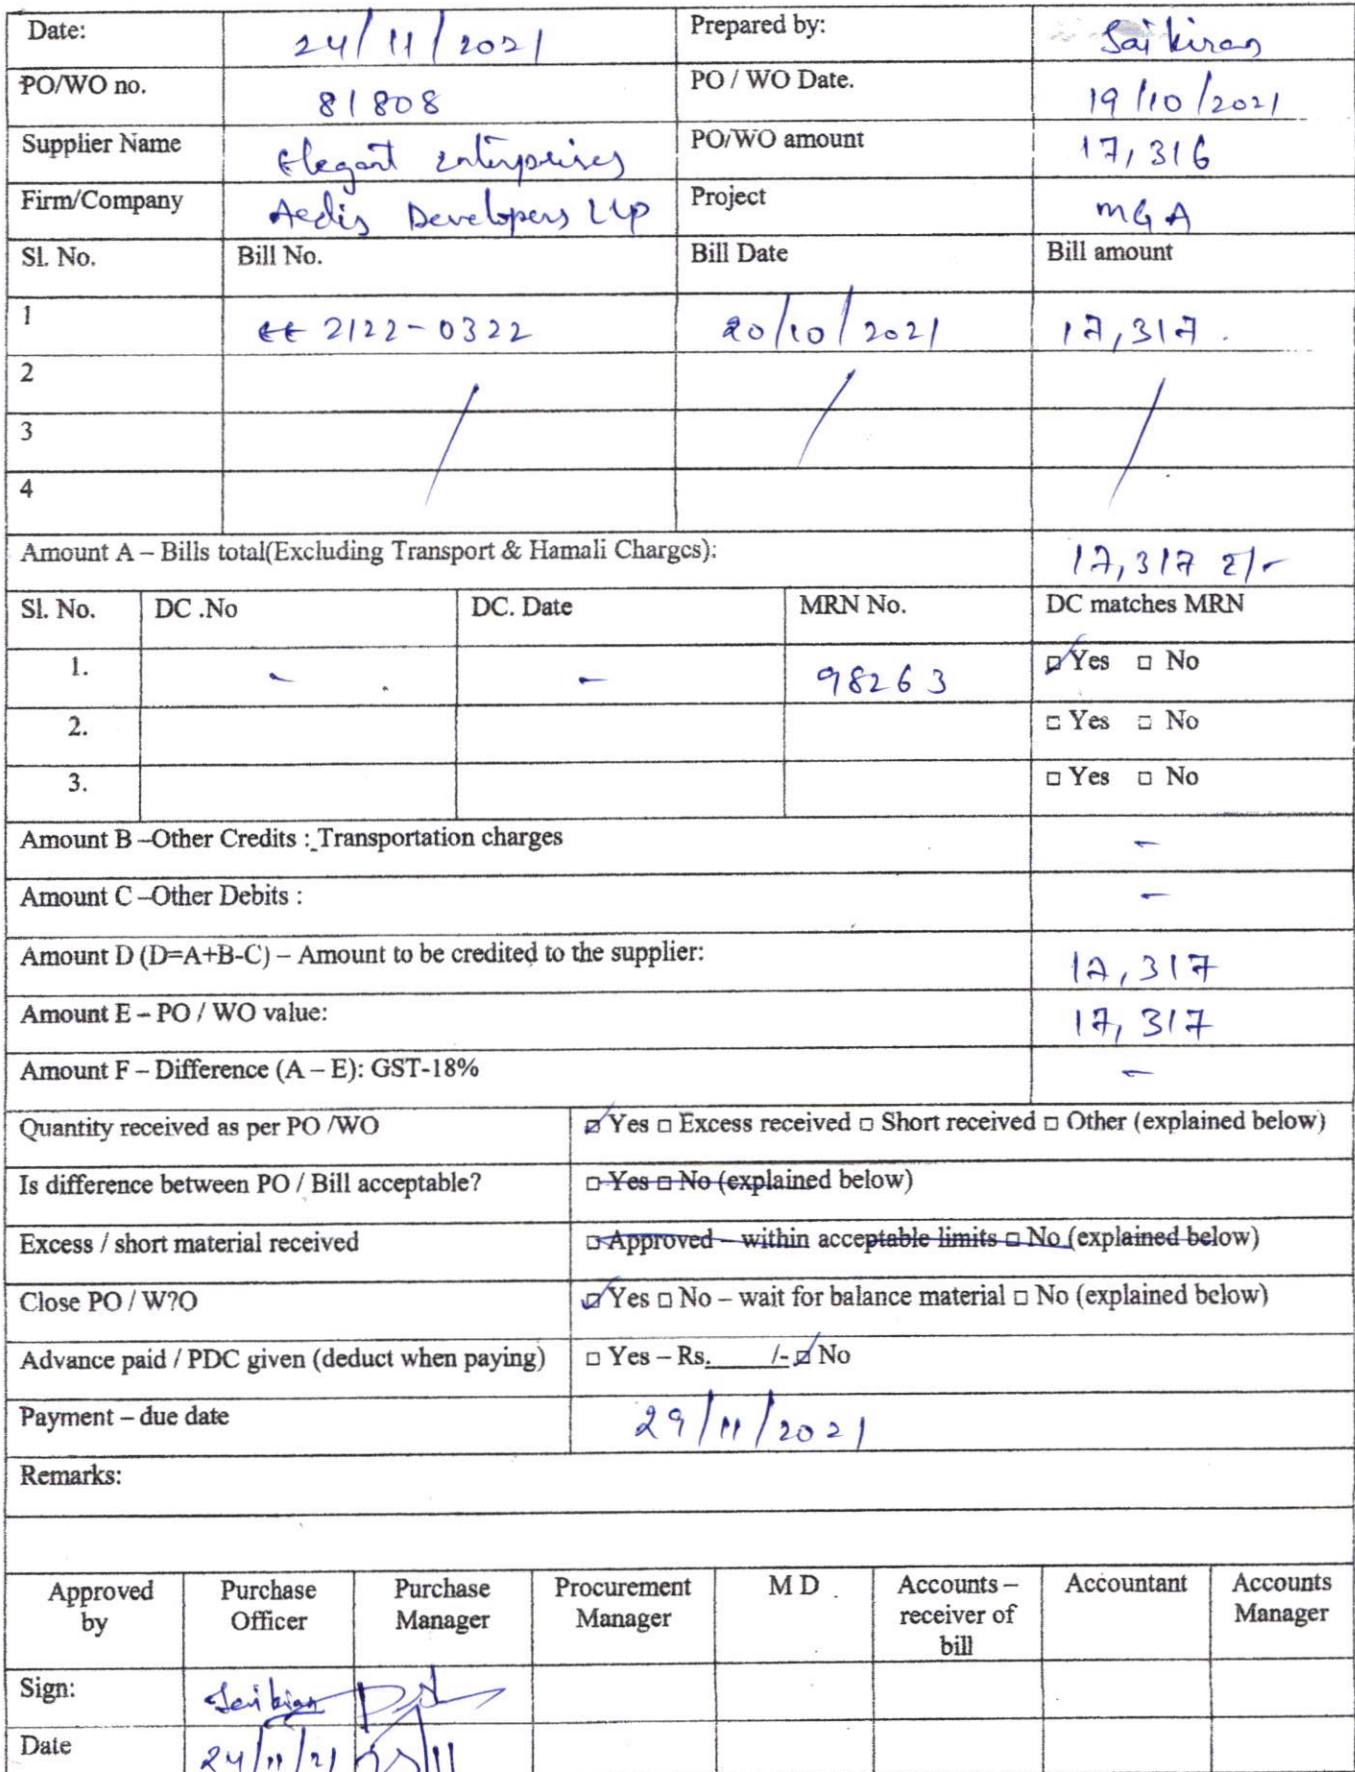 Date: 24/11/2021 Prepared by: Sai kiran
PO/WO no. 81808 PO / WO Date. 19/10/2021
Supplier Name Elegant Enterprises PO/WO amount 17,316
Firm/Company Aedis Developers LLP Project MGA
Sl. No. Bill No. Bill Date Bill amount
1 EE 2122-0322 20/10/2021 17,317.
2
3
4
Amount A – Bills total(Excluding Transport & Hamali Charges): 17,317 2/-
Sl. No. DC .No DC. Date MRN No. DC matches MRN
1. - . - 98263 ☑ Yes □ No
2. □ Yes □ No
3. □ Yes □ No
Amount B –Other Credits : Transportation charges -
Amount C –Other Debits : -
Amount D (D=A+B-C) – Amount to be credited to the supplier: 17,317
Amount E – PO / WO value: 17,317
Amount F – Difference (A – E): GST-18% -
Quantity received as per PO /WO ☑ Yes □ Excess received □ Short received □ Other (explained below)
Is difference between PO / Bill acceptable? □ Yes □ No (explained below)
Excess / short material received □ Approved – within acceptable limits □ No (explained below)
Close PO / W?O ☑ Yes □ No – wait for balance material □ No (explained below)
Advance paid / PDC given (deduct when paying) □ Yes – Rs.____/- ☑ No
Payment – due date 29/11/2021
Remarks:
Approved by Purchase Officer Purchase Manager Procurement Manager M D . Accounts – receiver of bill Accountant Accounts Manager
Sign: Sai kiran
Date 24/11/21